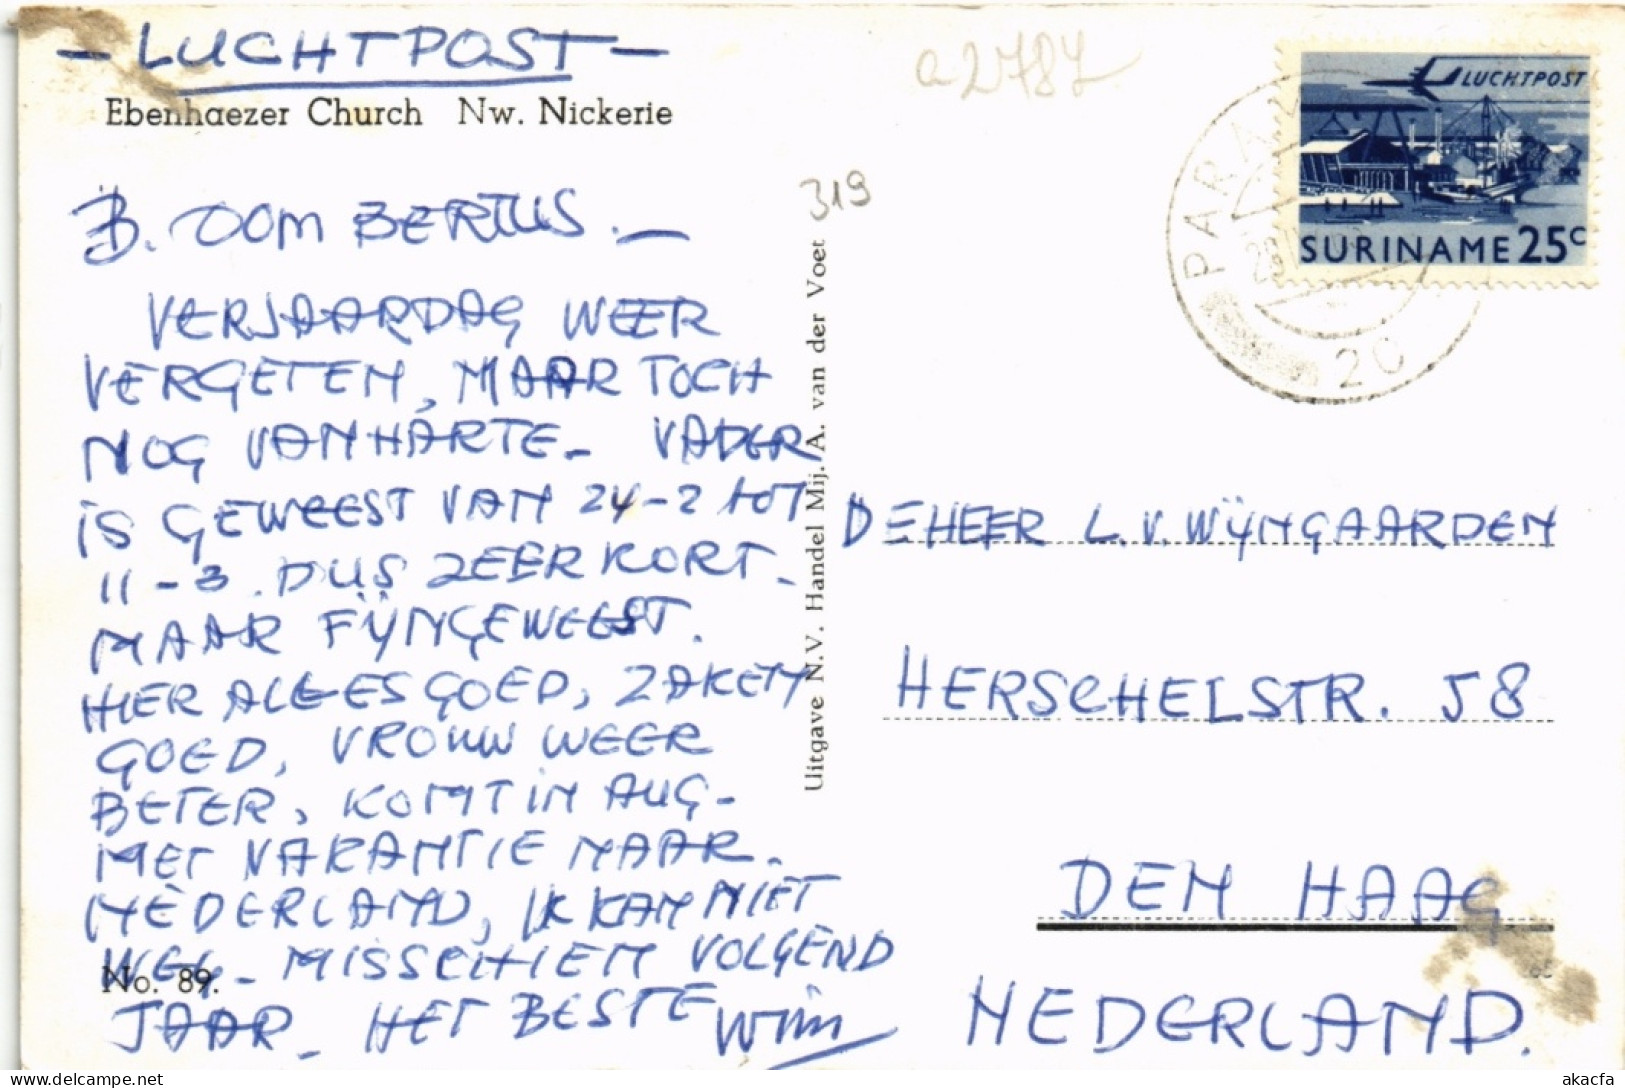 - LUCHTPOST -
Ebenhaezer Church Nw. Nickerie
B. OOM BERTUS. -
VERJAARDAG WEER
VERGETEN, MAAR TOCH
NOG VAN HARTE - VADER
IS GEWEEST VAN 24-2 tot
11-3. DUS ZEER KORT -
MAAR FIJN GEWEEST.
HIER ALLES GOED, ZAKEN
GOED, VROUW WEER
BETER, KOMT IN AUG-
MET VAKANTIE NAAR
NEDERLAND, IK KAN NIET
WEG - MISSCHIEN VOLGEND
No. 89.
JAAR - HET BESTE Wim
Uitgave N.V. Handel Mij. A. van der Voet
319
a2787
LUCHTPOST
SURINAME 25c
PARA
20
DE HEER L. V. WIJNGAARDEN
HERSCHELSTR. 58
DEN HAAG
NEDERLAND.
akacfa